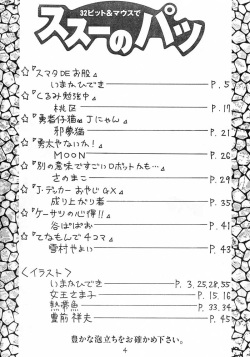 32ビット&マウスで
ススーのパツ
☆『スマタDEお股』
いまかひでき P.5
☆『くるみ勉強中』
桃区 P.17
☆『勇者仔猫』Jにゃん
邪夢猫 P.21
☆『勇太やないか!』
MOON P.26
☆『別の意味ですごいロボットかも…』
さのまこ P.29
☆『J・デッカー おやじGX』
成り上がり者 P.35
☆『ケーサツの心得!!』
谷ぱぱお P.41
☆『てなもんで4コマ』
雪村やよい P.43
<イラスト>
いまかひでき P.3,25,28,55
女王さま子 P.15,16
熱帯魚 P.33,34
豊前祥夫 P.45
豊かな泡立ちをお確かめ下さい。
4